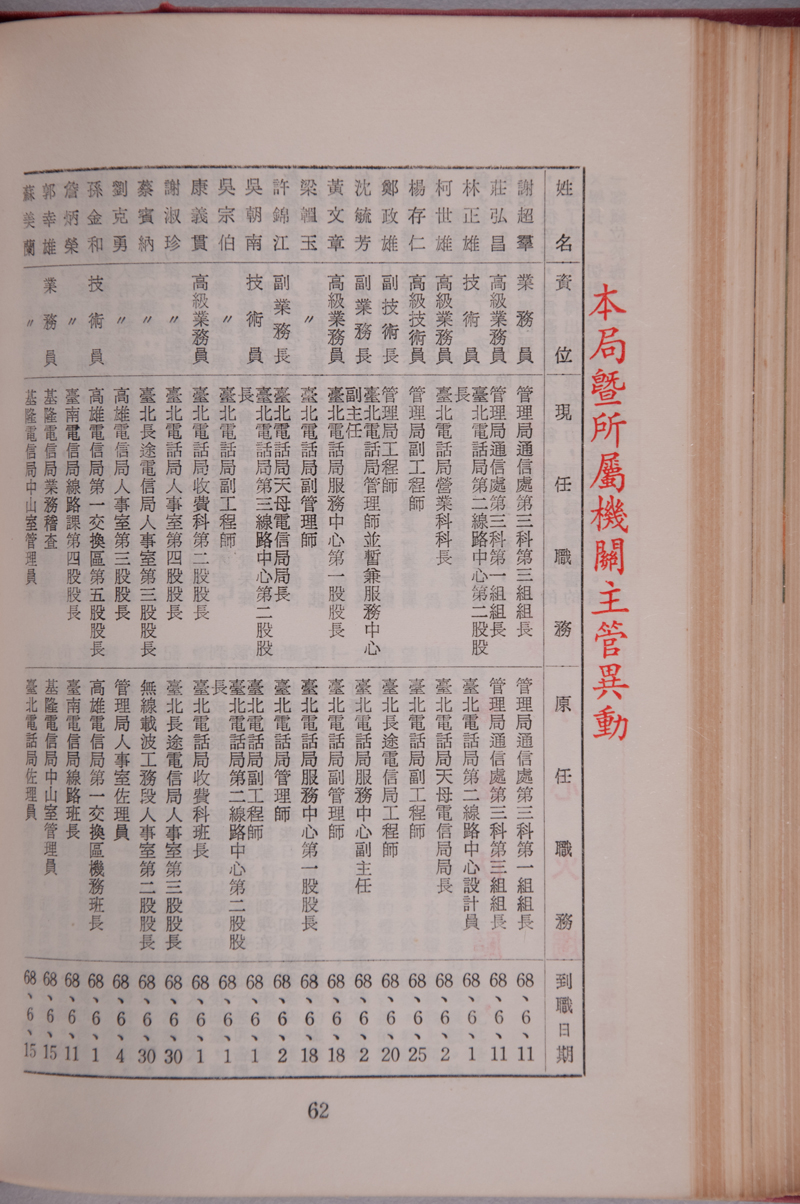 本局曁所屬機關主管異動
姓名 資位 現任職務 原任職務 到職日期
謝超羣 業務員 管理局通信處第三科第三組組長 管理局通信處第三科第一組組長 68、6、11
莊弘昌 高級業務員 管理局通信處第三科第一組組長 管理局通信處第三科第三組組長 68、6、11
林正雄 技術員 臺北電話局第二線路中心第二股股長 臺北電話局第二線路中心設計員 68、6、1
柯世雄 高級業務員 臺北電話局營業科科長 臺北電話局天母電信局局長 68、6、2
楊存仁 高級技術員 管理局副工程師 臺北電話局副工程師 68、6、25
鄭政雄 副技術長 管理局工程師 臺北長途電信局工程師 68、6、20
沈毓芳 副業務長 臺北電話局管理師並暫兼服務中心副主任 臺北電話局服務中心副主任 68、6、2
黃文章 高級業務員 臺北電話局服務中心第一股股長 臺北電話局副管理師 68、6、18
梁韞玉 〃 臺北電話局副管理師 臺北電話局服務中心第一股股長 68、6、18
許錦江 副業務長 臺北電話局天母電信局局長 臺北電話局管理師 68、6、2
吳朝南 技術員 臺北電話局第三線路中心第二股股長 臺北電話局副工程師 68、6、1
吳宗伯 〃 臺北電話局副工程師 臺北電話局第二線路中心第二股股長 68、6、1
康義貫 高級業務員 臺北電話局收費科第二股股長 臺北電話局收費科班長 68、6、1
謝淑珍 〃 臺北電話局人事室第四股股長 臺北長途電信局人事室第三股股長 68、6、30
蔡賓納 〃 臺北長途電信局人事室第三股股長 無線載波工務段人事室第二股股長 68、6、30
劉克勇 〃 高雄電信局人事室第三股股長 管理局人事室佐理員 68、6、4
孫金和 技術員 高雄電信局第一交換區第五股股長 高雄電信局第一交換區機務班長 68、6、1
詹炳榮 〃 臺南電信局線路課第四股股長 臺南電信局線路班長 68、6、11
郭幸雄 業務員 基隆電信局業務稽查 基隆電信局中山室管理員 68、6、15
蘇美蘭 〃 基隆電信局中山室管理員 臺北電話局佐理員 68、6、15
62